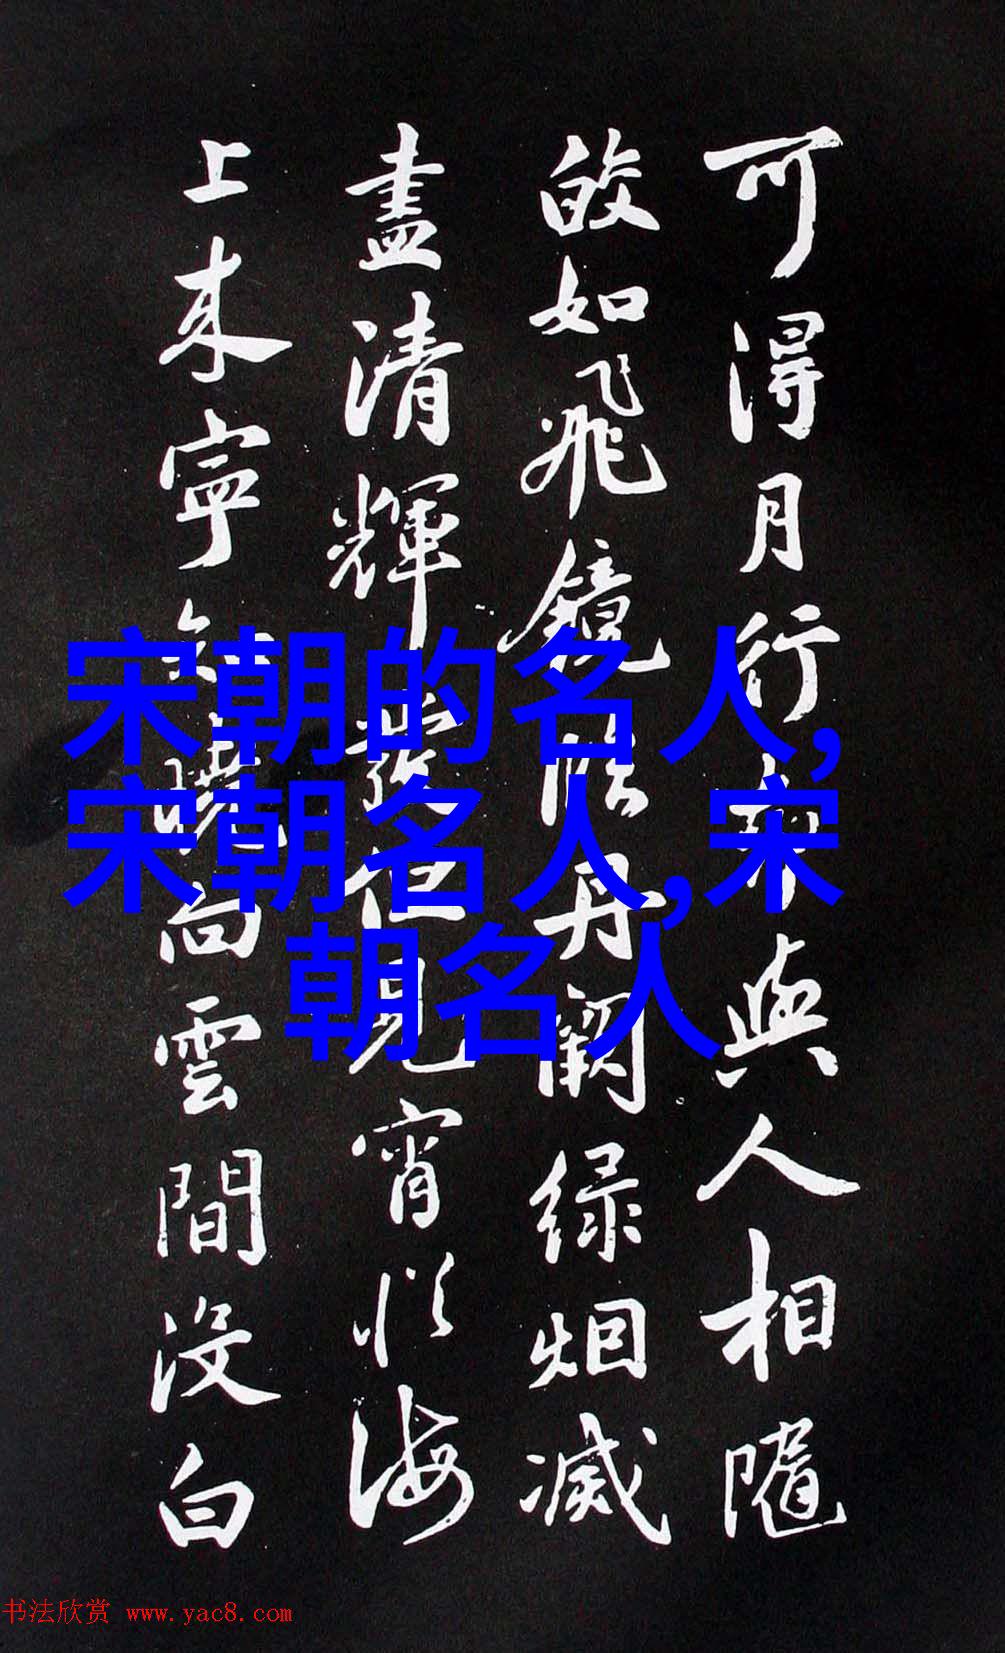 可得月行却與人相隨
皎如飛鏡臨丹闕绿烟滅
盡清輝發但見宵從海
上来寧知曉向雲間没白
宋朝的名人,
宋朝名人,宋
朝名人
书法欣赏 www.yac8.com